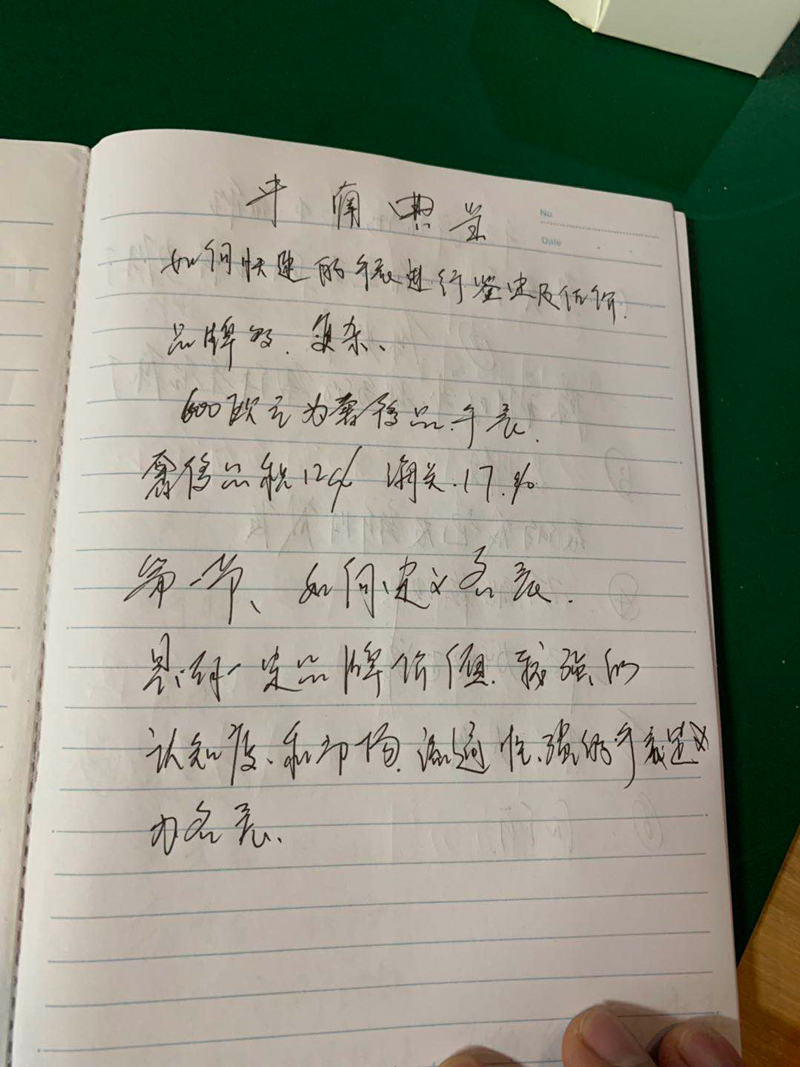 No
Date
如何快速的手表进行鉴定及估价.
品牌多.复杂、
600欧元为奢侈品.手表.
奢侈品税12% 海关.17.%
第一节、如何定义名表.
具有一定品牌价值.较强的
认知度、和市场.流通性.强的手表定义
为名表.